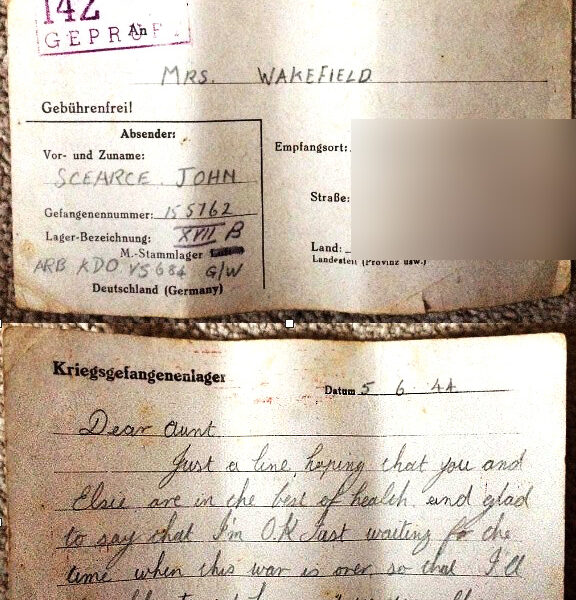 142
GEPRÜF
An
MRS. WAKEFIELD
Gebührenfrei!
Absender:
Vor- und Zuname:
SCEARCE JOHN
Gefangenennummer: 155162
Lager-Bezeichnung: XVII B
M.-Stammlager
ARB KDO VS 684 G/W
Deutschland (Germany)
Empfangsort:
Straße:
Land:
Landesteil (Provinz usw.)
Kriegsgefangenenlager
Datum 5 6 44
Dear Aunt
Just a line, hoping that you and
Elsie are in the best of health and glad
to say that I'm O.K Just waiting for the
time when this war is over so that I'll